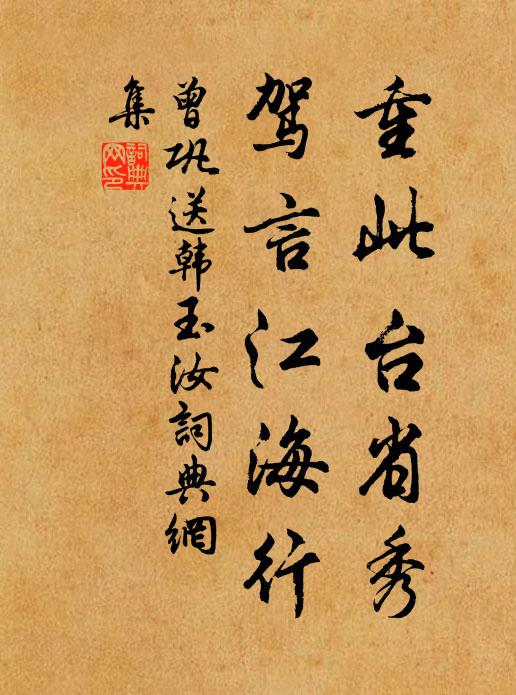 重此台省秀
驾言江海行
曾巩送韩玉汝詞典網
集
詞典
网印